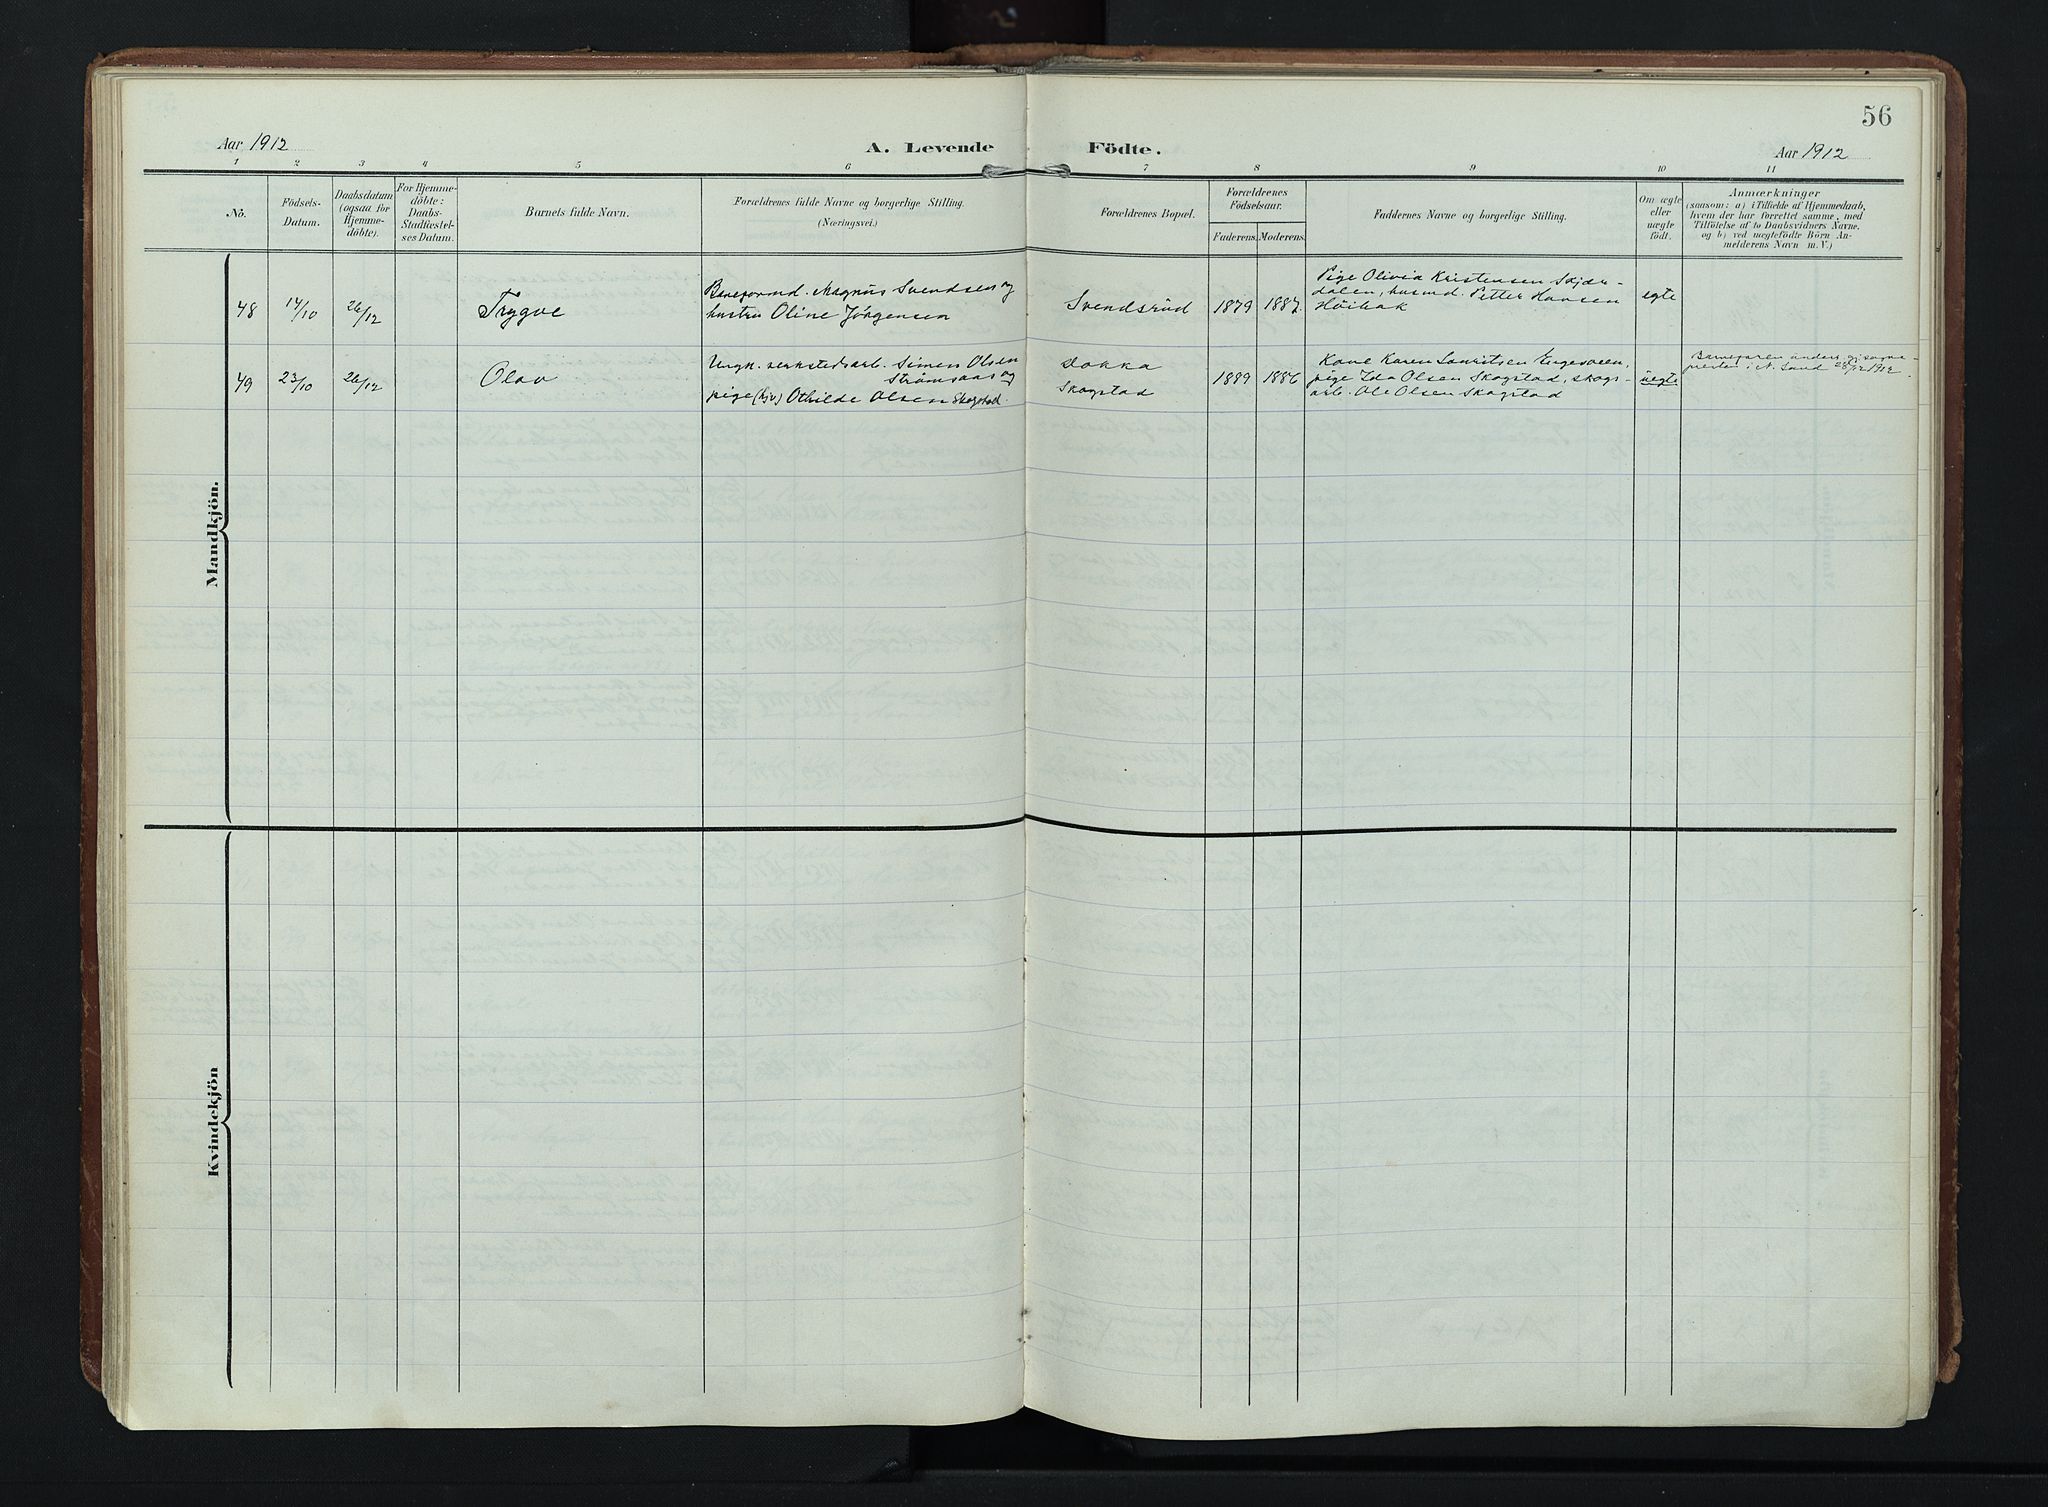 56
Aar 1912
A. Levende Födte.
Aar 1912
1 2 3 4 5 6 7 8 9 10 11
Nô.
Födsels-
Datum.
Daabsdatum
(ogsaa for
Hjemme-
döbte).
For Hjemme-
döbte:
Daabs-
Stadfæstel-
ses Datum.
Barnets fulde Navn.
Forældrenes fulde Navne og borgerlige Stilling.
(Næringsvei.)
Forældrenes Bopæl.
Forældrenes
Födselsaar.
Faderens. Moderens.
Faddernes Navne og borgerlige Stilling.
Om ægte
eller
uægte
födt.
Anmærkninger
(saasom: a) i Tilfælde af Hjemmedaab,
hvem der har forrettet samme, med
Tilföielse af to Daabsvidners Navne.
og b) ved uægtefödte Börn An-
melderens Navn m. V.)
Mandkjön.
48 14/10 26/12 Trygve
Baneformd. Magnus Svendsen og
hustru Oline Jörgensen
Svendsrud
1879 1887
Pige Olivia Kristensen Skjær-
dalen, husmd. Petter Hansen
Höibak
egte
49 23/10 26/12 Olav
Ungk. verkstedsarb. Simen Olsen
Strömsaas og
pige (hjv) Othilde Olsen Skogstad.
Dokka
Skogstad
1889 1886
Kone Karen Lauritsen Engesveen,
pige Ida Olsen Skogstad, skogs-
arb. Ole Olsen Skogstad
uegte
Barnefaren underr. gj. sogne-
presten i N. Land 28/12 1912
Kvindekjön